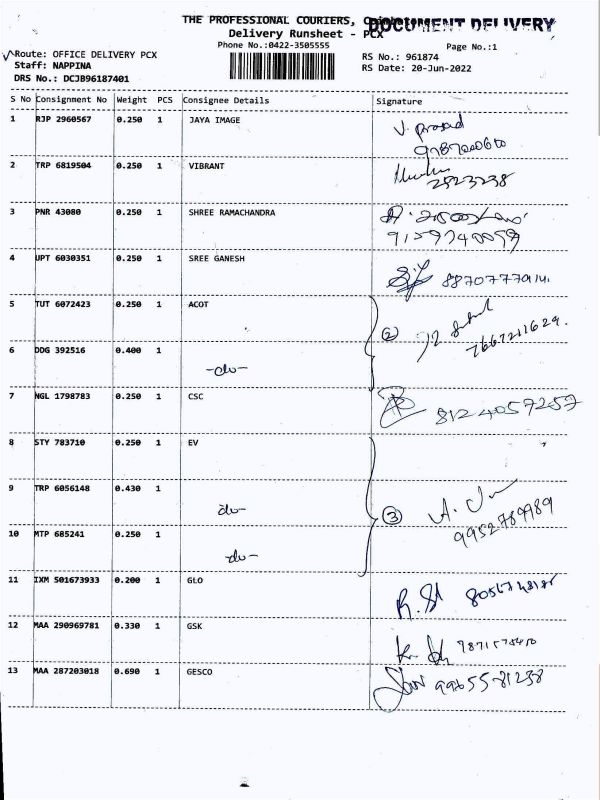 THE PROFESSIONAL COURIERS,
DOCUMENT DELIVERY
Delivery Runsheet - PCX
Phone No.:0422-3505555
Page No.:1
Route: OFFICE DELIVERY PCX
RS No.: 961874
Staff: NAPPINA
RS Date: 20-Jun-2022
DRS No.: DCJB96187401
S No Consignment No Weight PCS Consignee Details Signature
1 RJP 2960567 0.250 1 JAYA IMAGE
V. Prasad
2 TRP 6819504 0.250 1 VIBRANT
2523238
3 PNR 43080 0.250 1 SHREE RAMACHANDRA
4 UPT 6030351 0.250 1 SREE GANESH
5 TUT 6072423 0.250 1 ACOT
2
7667211629.
6 DDG 392516 0.400 1
-do-
7 NGL 1798783 0.250 1 CSC
8124057257
8 STY 783710 0.250 1 EV
9 TRP 6056148 0.430 1
do-
3
9952789989
10 MTP 685241 0.250 1
do-
11 IXM 501673933 0.200 1 GLO
12 MAA 290969781 0.330 1 GSK
13 MAA 287203018 0.690 1 GESCO
9965581238